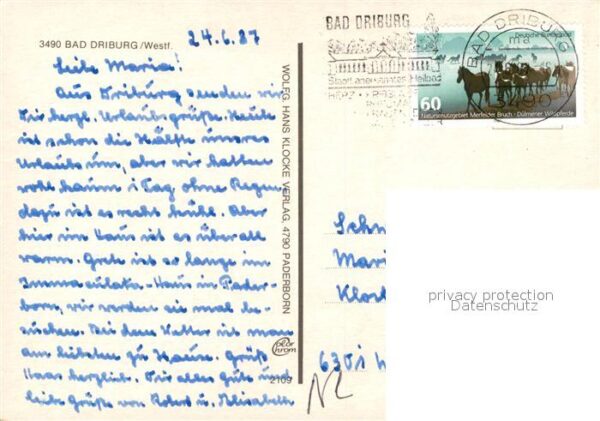 3490 BAD DRIBURG/Westf.
24.6.87
Liebe Maria!
Aus Driburg senden wir
Dir herzl. Urlaubsgrüße. Heute
ist schon die Hälfte unseres
Urlaubs um, aber wir hatten
wohl kaum 1 Tag ohne Regen
dazu ist es recht kühl. Aber
hier im Haus ist es überall
warm. Grete ist so lange im
Immaculata-Haus in Pader-
born, wir werden sie mal be-
suchen. Bei dem Wetter ist man
am liebsten zu Hause. Grüß
herzlich. Dir alles Gute und
liebe Grüße von u. Elisabeth
WOLFG. HANS KLOCKE VERLAG, 4790 PADERBORN
color chrom
2109
BAD DRIBURG
Staatl. anerkanntes Heilbad
HERZ
BAD DRIBURG
3490
Deutsche Bundespost
60
Naturschutzgebiet Merfelder Bruch · Dülmener Wildpferde
Schw
Mari
Klost
6301
privacy protection
Datenschutz